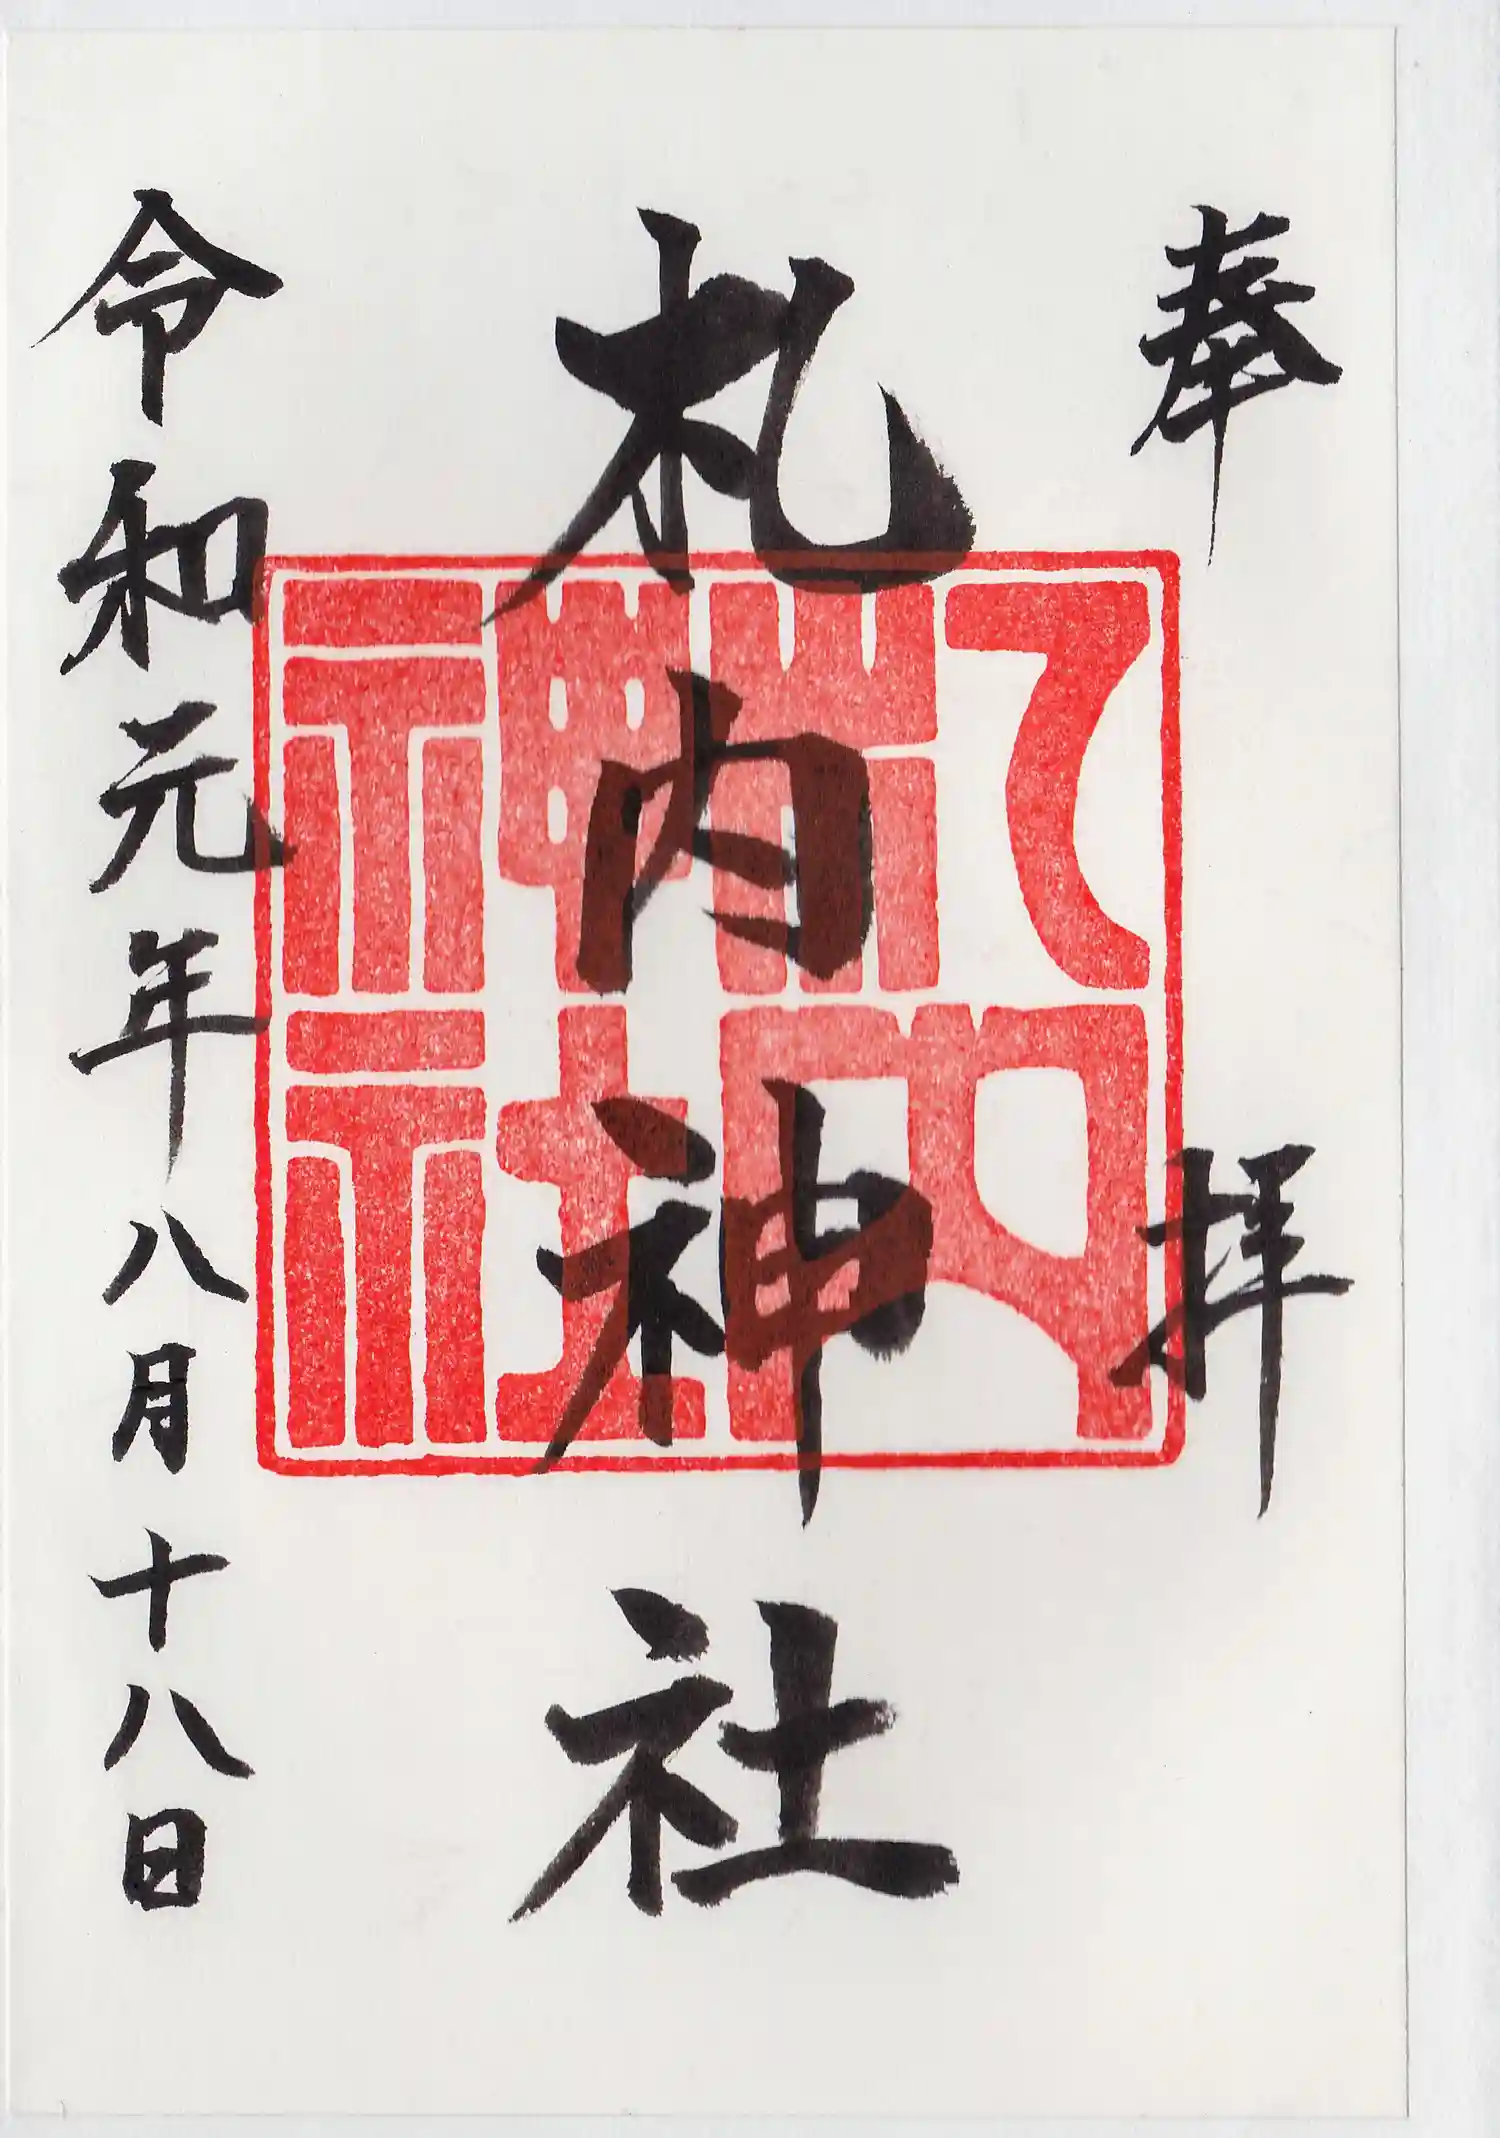 奉拝
札内神社
札内神社
令和元年八月十八日